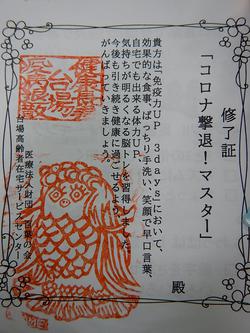 修了証
「コロナ撃退!マスター」
殿
貴方は「免疫力UP 3days」において、
効果的な食事、ばっちり手洗い、笑顔で早口言葉、
自宅でも出来る体力UP、
気持ちが明るくなる脳トレを習得しました。
今後も引き続き健康に過ごせるよう、
がんばっていきましょう。
医療法人財団
台場高齢者在宅サービスセンター
台場